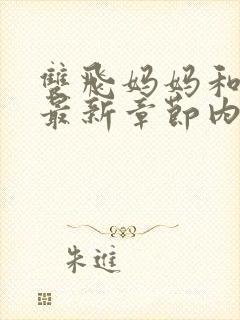 雙飛妈妈和
最新章節内
朱進